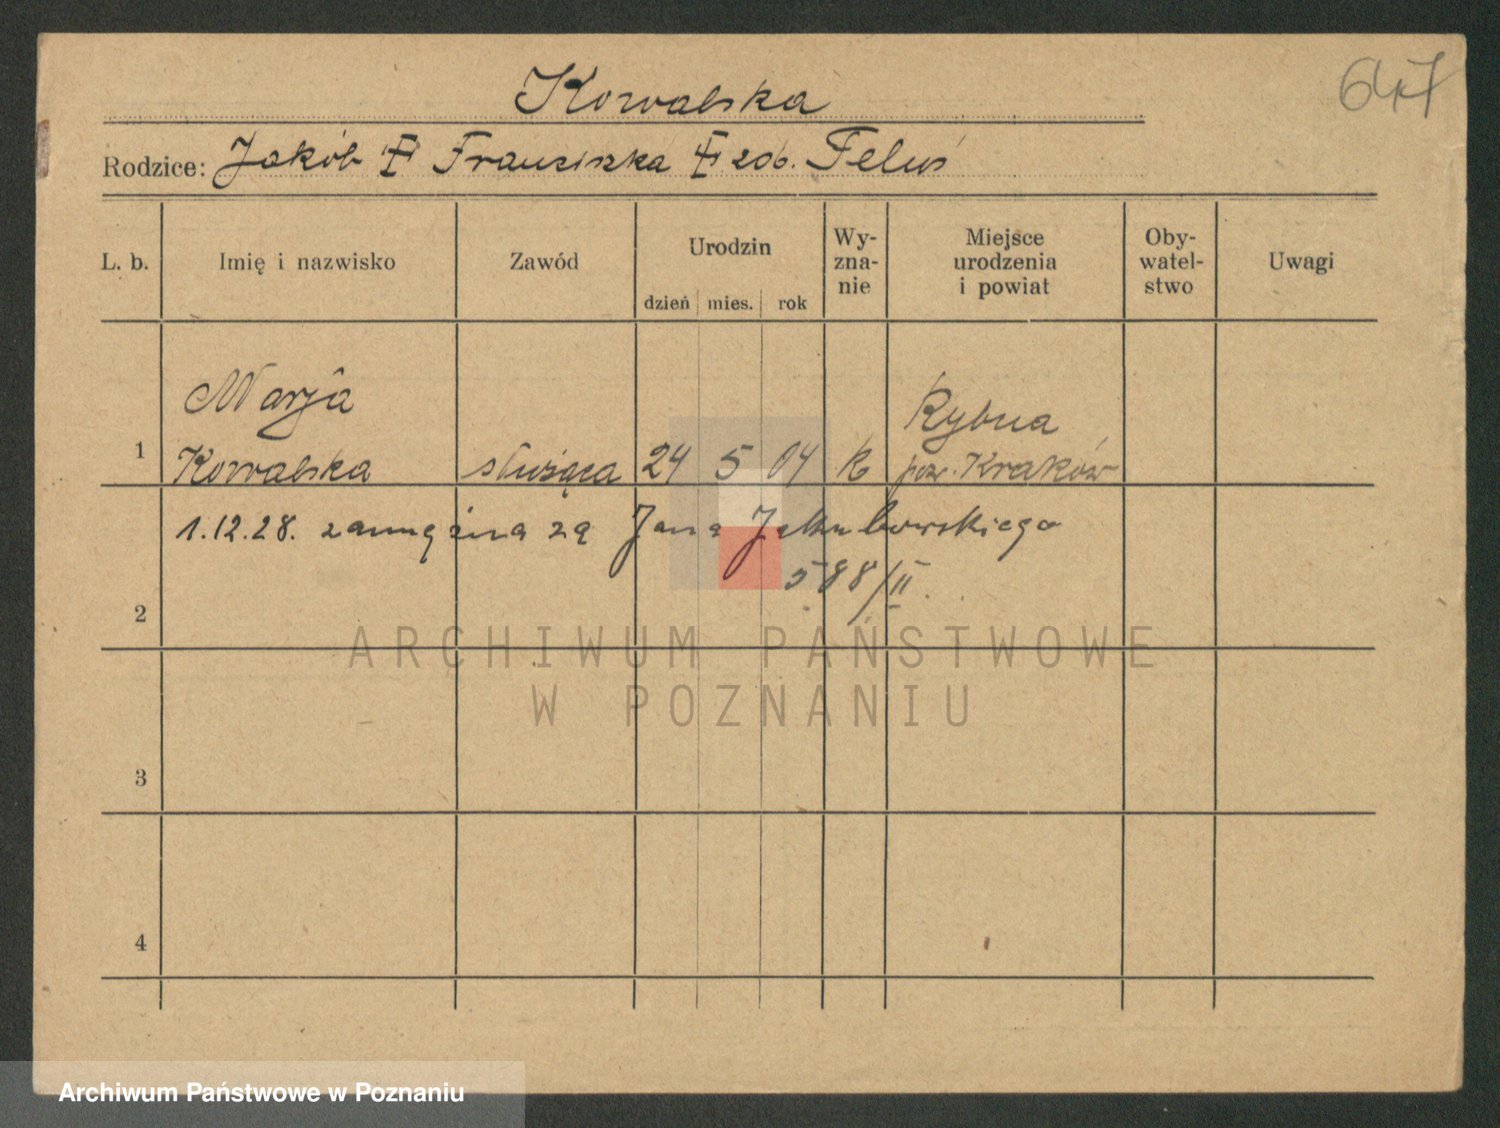 647
Kowalska
Rodzice: Jakób Franciszka zob. Feluś
L. b. Imię i nazwisko Zawód Urodzin dzień mies. rok Wy-zna-nie Miejsce urodzenia i powiat Oby-watel-stwo Uwagi
Marja Rybna
1 Kowalska służąca 24 5 04 k pow. Kraków
1.12.28. zamężna za Jana Jakubowskiego
588/II.
2
ARCHIWUM PAŃSTWOWE
W POZNANIU
3
4
Archiwum Państwowe w Poznaniu